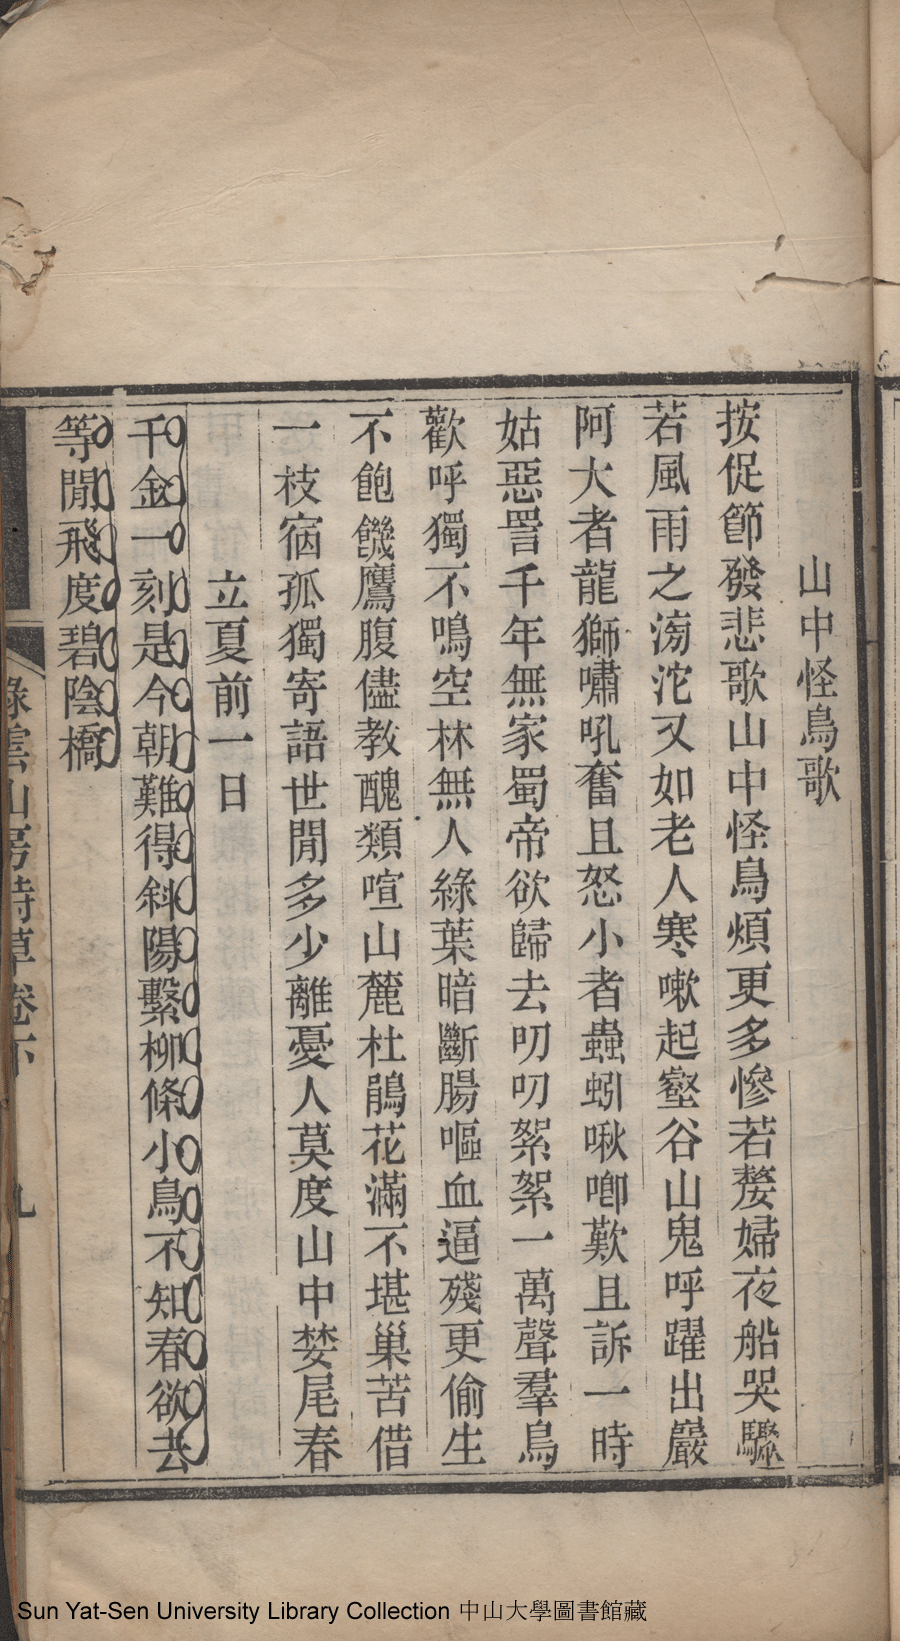 山中怪鳥歌
按促節發悲歌山中怪鳥煩更多慘若嫠婦夜船哭驟
若風雨之滂沱又如老人寒嗽起壑谷山鬼呼躍出巖
阿大者龍獅嘯吼奮且怒小者蟲蚓啾喞歎且訴一時
姑惡詈千年無家蜀帝欲歸去叨叨絮絮一萬聲羣鳥
歡呼獨不鳴空林無人綠葉暗斷腸嘔血逼殘更偷生
不飽饑鷹腹儘教醜類喧山麓杜鵑花滿不堪巢苦借
一枝宿孤獨寄語世閒多少離憂人莫度山中婪尾春
立夏前一日
千金一刻是今朝難得斜陽繫柳條小鳥不知春欲去
等閒飛度碧陰橋
綠雲山房詩草卷下
九
Sun Yat-Sen University Library Collection 中山大學圖書館藏